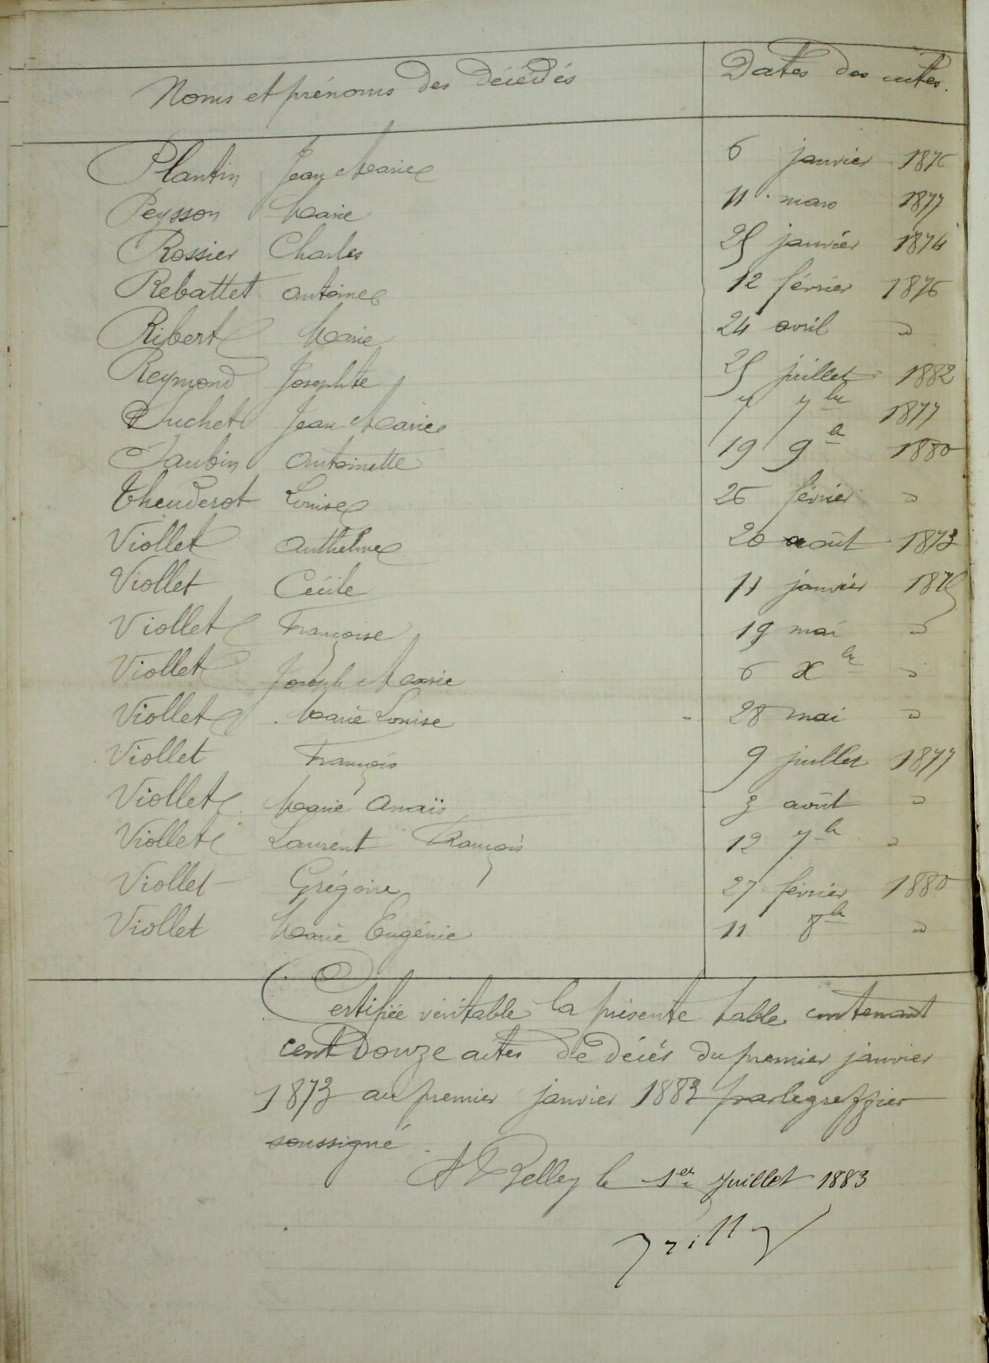 Noms et prénoms des décédés Dates des actes.
Plantin Jean Marie 6 janvier 1876
Peysson Marie 11 mars 1877
Rossier Charles 25 janvier 1874
Rebattet Antoine 12 février 1876
Ribert Marie 24 avril "
Reymond Josephte 25 juillet 1882
Suchet Jean Marie 7 7bre 1877
Taubin Antoinette 19 9e 1880
Theuderot Louise 26 février "
Viollet Anthelme 20 août 1873
Viollet Cécile 11 janvier 1875
Viollet Françoise 19 mai "
Viollet Joseph Marie 6 Xbre "
Viollet Marie Louise 28 mai "
Viollet François 9 juillet 1877
Viollet Marie Anaïs 3 août "
Viollet Laurent François 12 7b "
Viollet Grégoire 27 février 1880
Viollet Marie Eugénie 11 8bre "
Certifiée véritable la présente table contenant
cent douze actes de décès du premier janvier
1873 au premier janvier 1883 par le greffier
soussigné.
Belley le 1er Juillet 1883